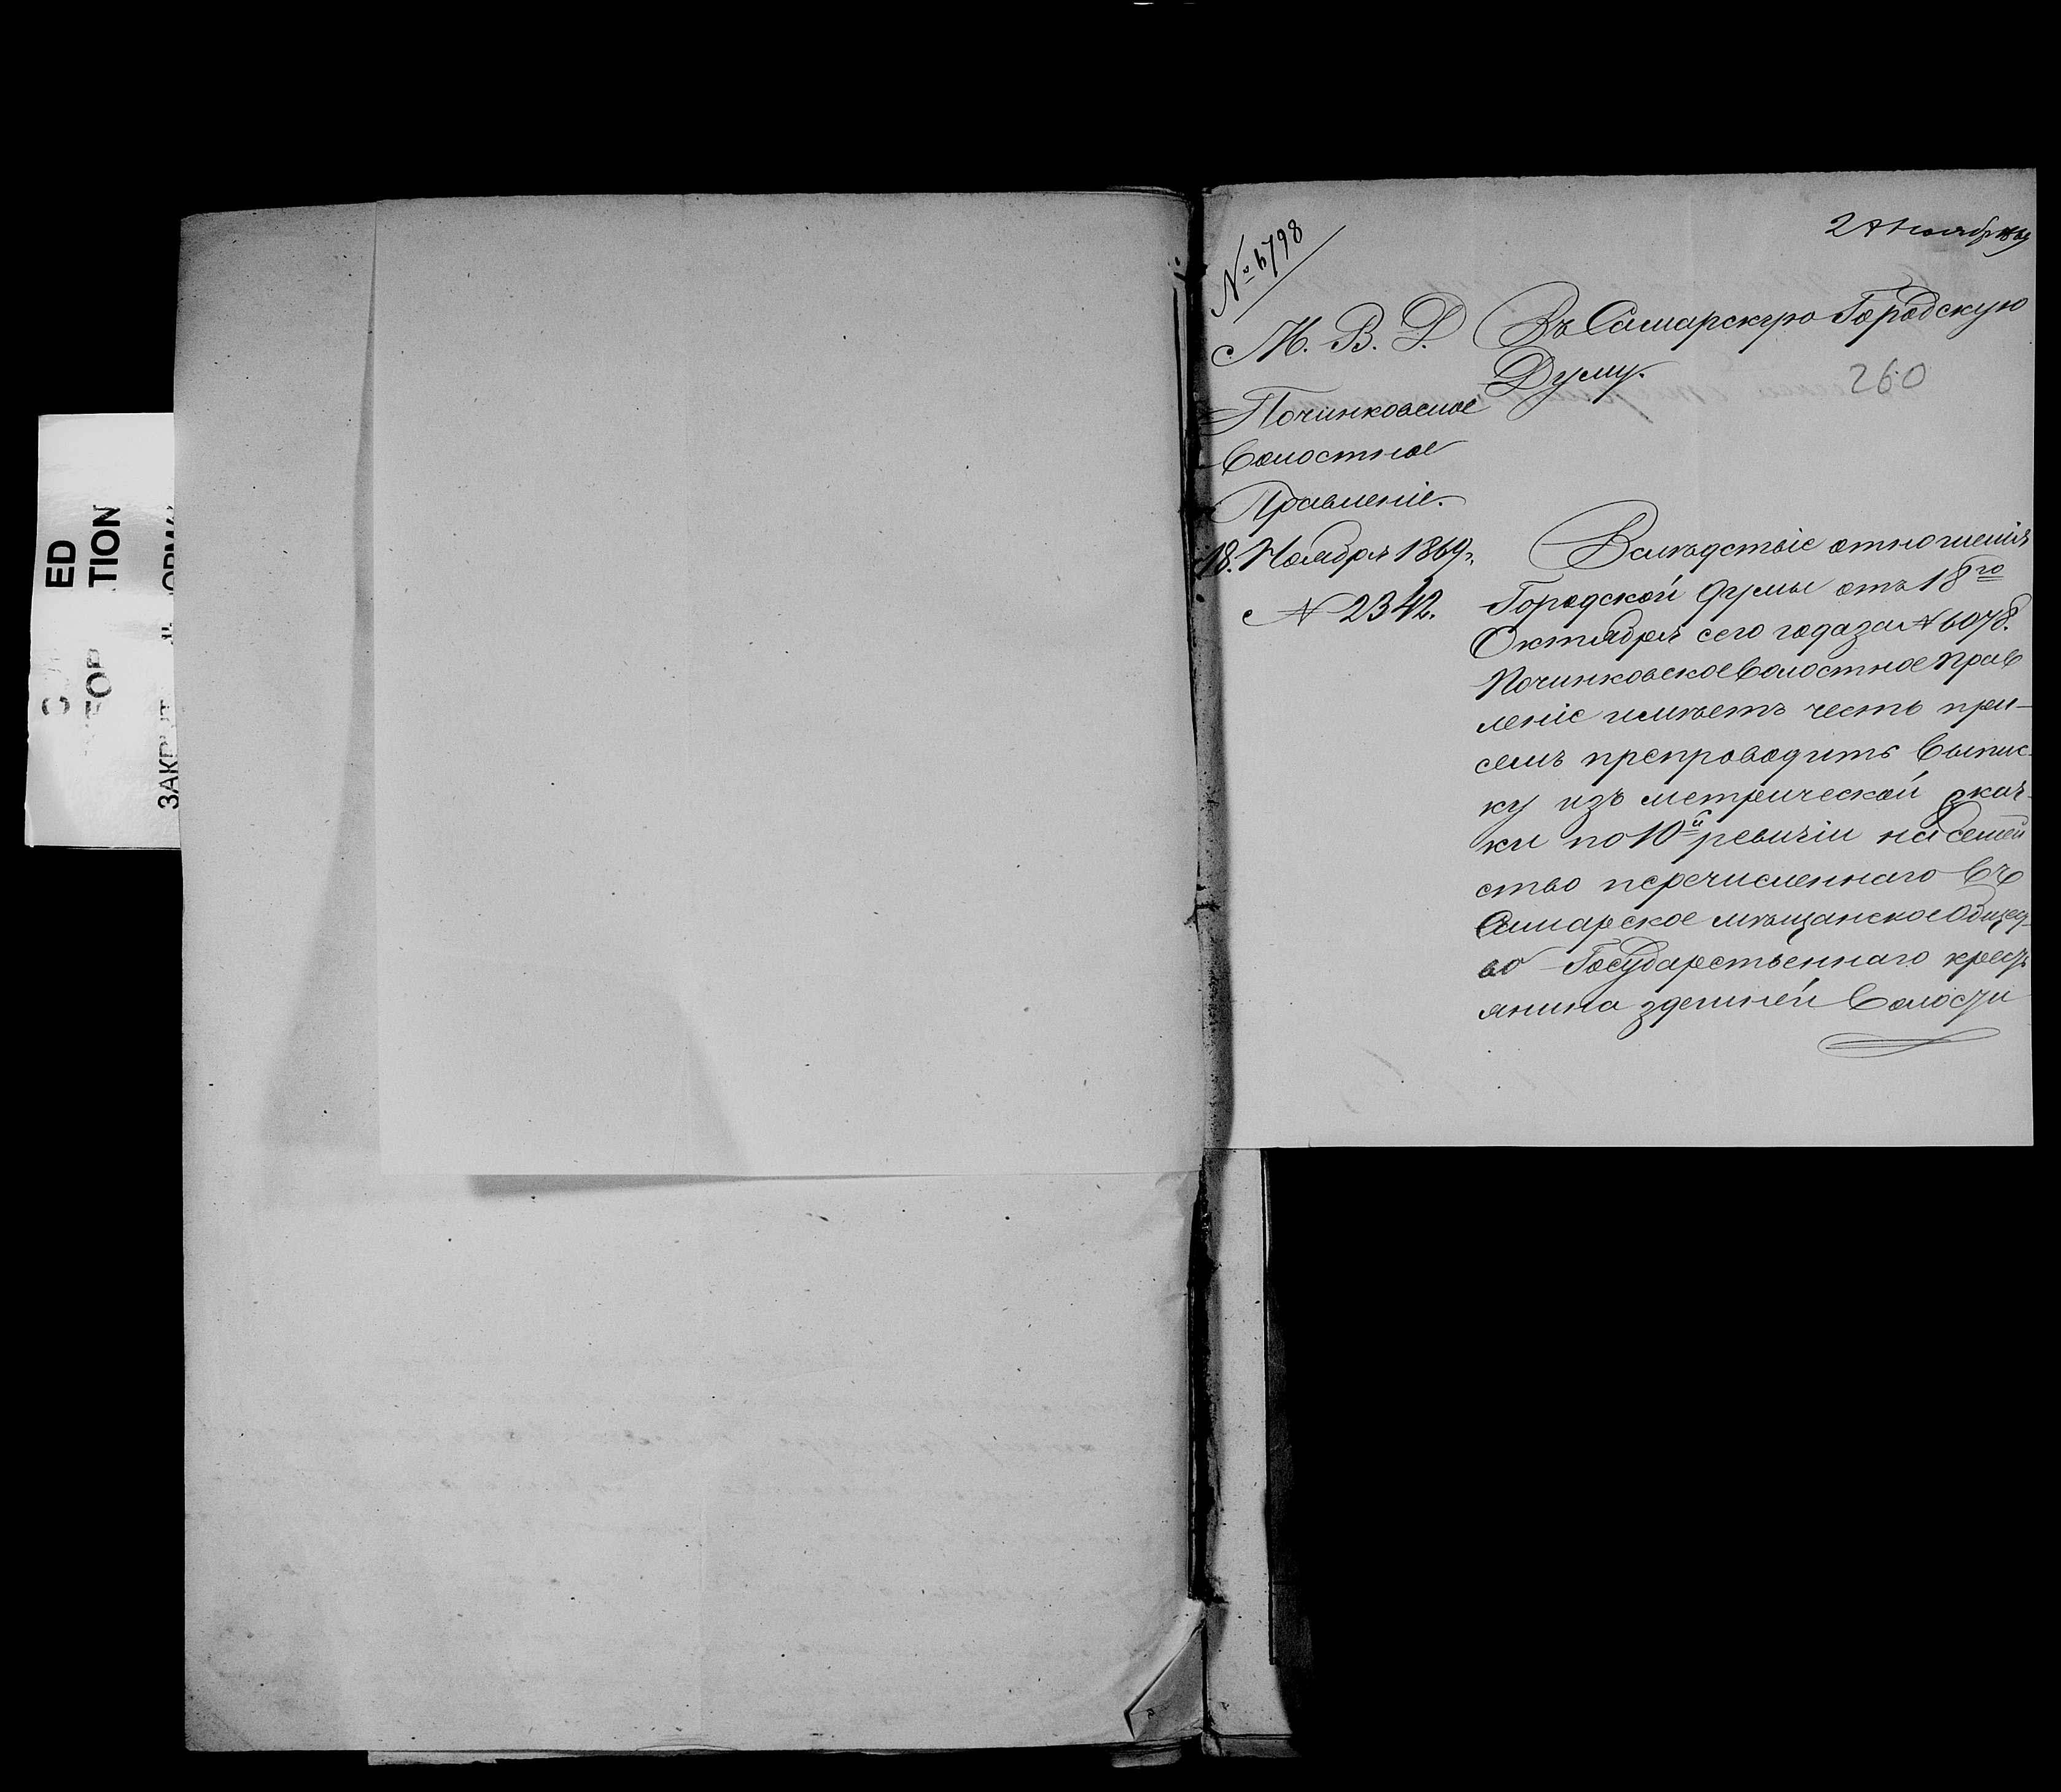 № 6798
24 Ноября 1869
М. В. Д.
Починковское
Волостное
Правленіе.
18. Ноября 1869 г.
№ 2342.
Въ Самарскую Городскую
Думу.
260
Вслѣдствіе отношенія
Городской Думы отъ 18го
Октября сего года за № 6078.
Починковское Волостное Прав
леніе имѣетъ честь при-
семъ препроводить выпис-
ку изъ метрической скаč-
ки по 10й ревизіи на семей
ство перечисленнаго въ
Самарское мѣщанское Общес-
во Государственнаго крест
янина здѣшней волости
ED
TION
FOR